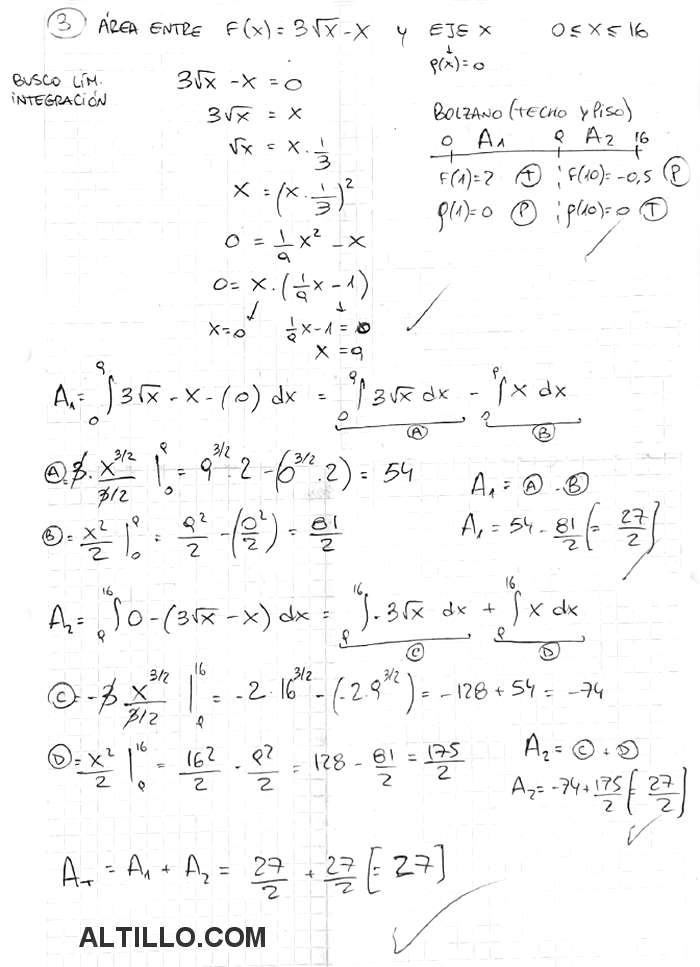 ③ ÁREA ENTRE F(x)= 3√x - x y EJE x 0 ≤ x ≤ 16
↓
g(x)=0
BUSCO LÍM. INTEGRACIÓN
3√x - x = 0
3√x = x
√x = x · 1/3
x = (x · 1/3)²
0 = 1/9 x² - x
0 = x · (1/9 x - 1)
x=0 1/9 x - 1 = 0
x = 9
BOLZANO (TECHO y PISO)
0 A1 9 A2 16
F(1)=2 Ⓣ ¦ F(10)= -0,5 Ⓟ
g(1)=0 Ⓟ ¦ g(10)=0 Ⓣ
A1 = ∫₀⁹ 3√x - x - (0) dx = ∫₀⁹ 3√x dx - ∫₀⁹ x dx
Ⓐ Ⓑ
Ⓐ = 3 · x^3/2 / 3/2 |₀⁹ = 9^3/2 · 2 - (0^3/2 · 2) = 54
A1 = Ⓐ - Ⓑ
Ⓑ = x²/2 |₀⁹ = 9²/2 - (0²/2) = 81/2
A1 = 54 - 81/2 [= 27/2]
A2 = ∫₉¹⁶ 0 - (3√x - x) dx = ∫₉¹⁶ -3√x dx + ∫₉¹⁶ x dx
Ⓒ Ⓓ
Ⓒ = -3 x^3/2 / 3/2 |₉¹⁶ = -2 · 16^3/2 - (-2 · 9^3/2) = -128 + 54 = -74
Ⓓ = x²/2 |₉¹⁶ = 16²/2 - 9²/2 = 128 - 81/2 = 175/2
A2 = Ⓒ + Ⓓ
A2 = -74 + 175/2 [= 27/2]
AT = A1 + A2 = 27/2 + 27/2 [= 27]
ALTILLO.COM